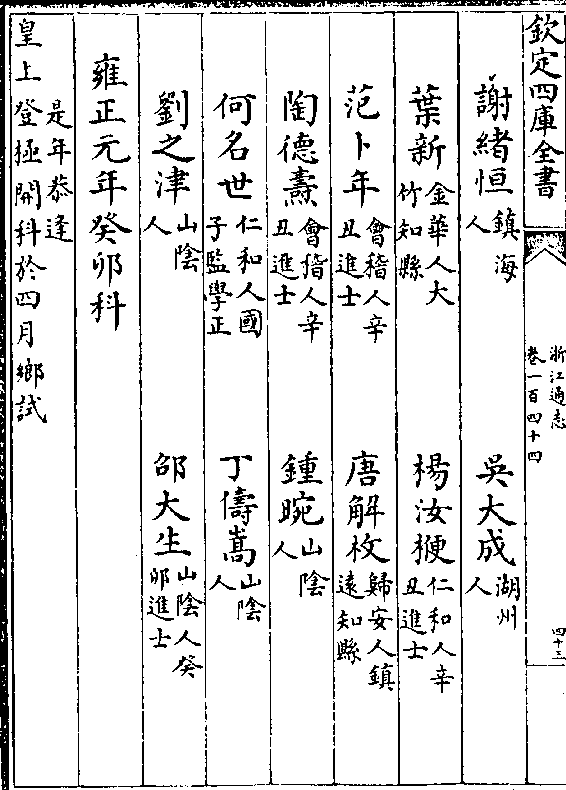 欽定四庫全書
浙江通志
卷一百四十四
四十三
謝緒恒 鎮海人
吳大成 湖州人
葉新 金華人大竹知縣
楊汝楩 仁和人辛丑進士
范卜年 會稽人辛丑進士
唐解枚 歸安人鎮遠知縣
陶德燾 會稽人辛丑進士
鍾晼 山陰人
何名世 仁和人國子監學正
丁儔嵩 山陰人
劉之津 山陰人
邵大生 山陰人癸卯進士
雍正元年癸卯科
是年恭逢
皇上登極開科於四月鄉試